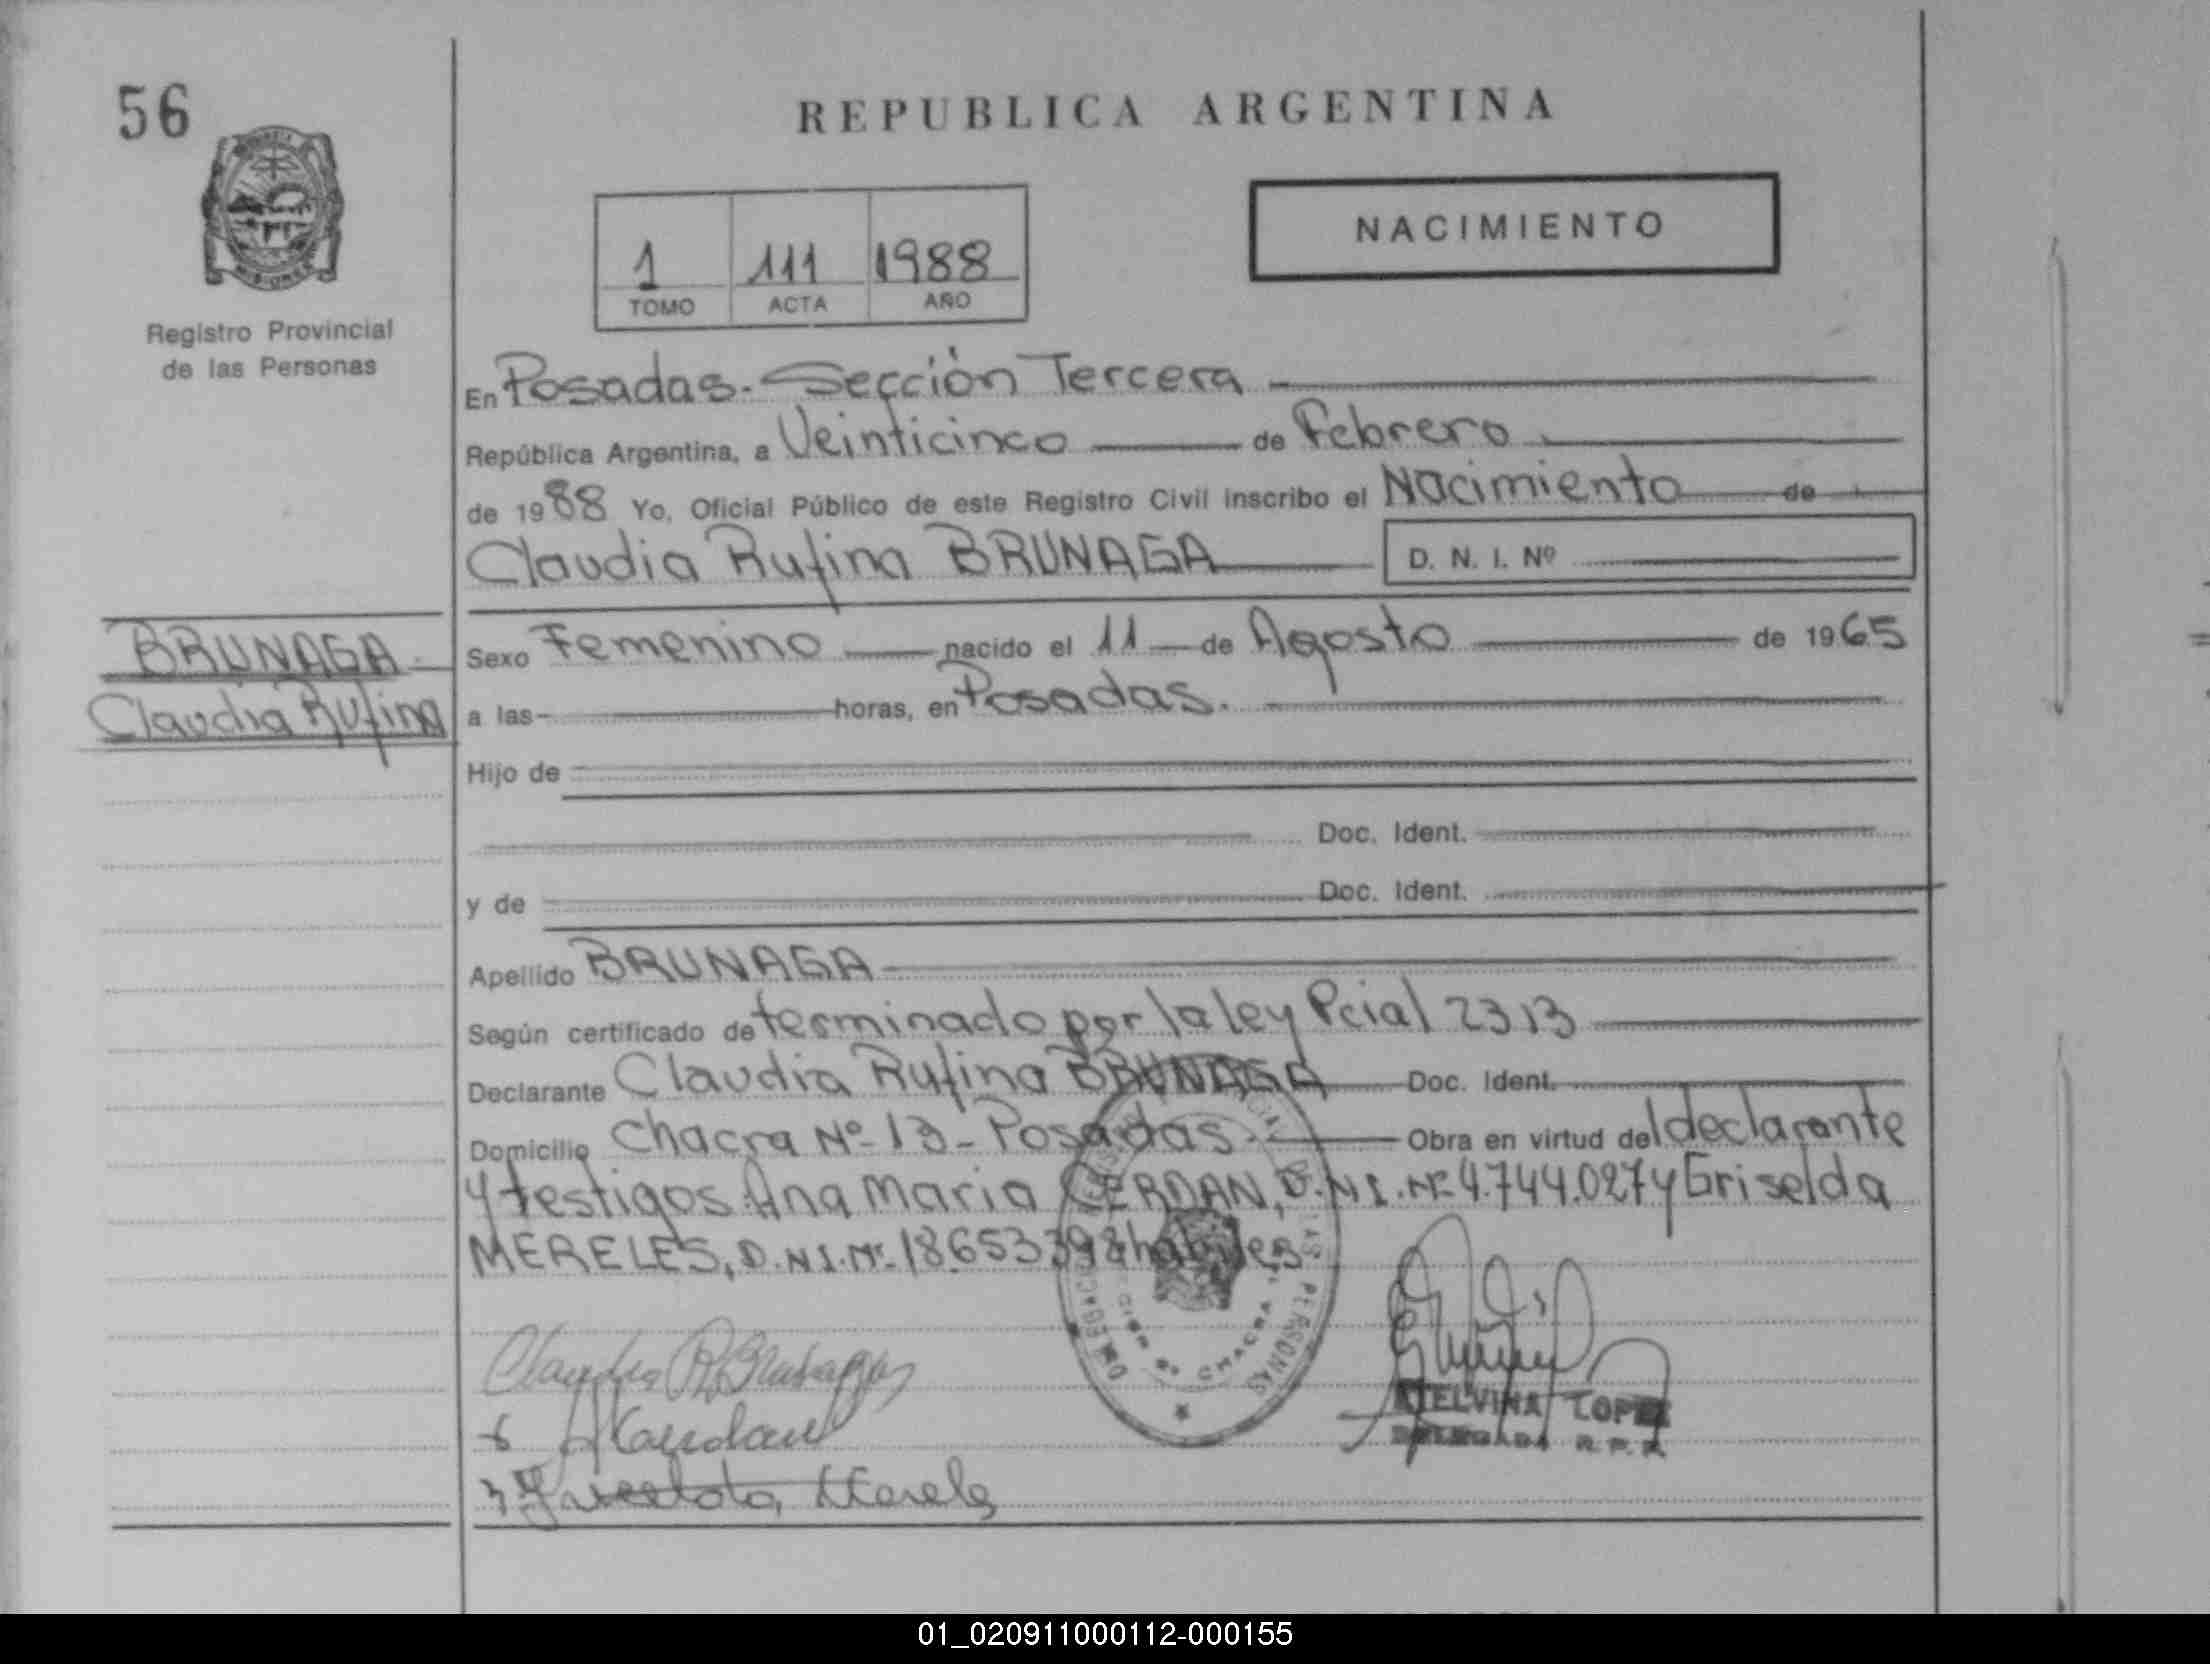 56
REPUBLICA ARGENTINA
NACIMIENTO
1 111 1988
TOMO ACTA AÑO
Registro Provincial
de las Personas
En Posadas.- Sección Tercera
República Argentina, a Veinticinco de Febrero
de 1988 Yo, Oficial Público de este Registro Civil inscribo el Nacimiento de
Claudia Rufina BRUNAGA D. N. I. Nº
BRUNAGA
Claudia Rufina
Sexo Femenino nacido el 11 de Agosto de 1965
a las horas, en Posadas.
Hijo de
Doc. Ident.
y de Doc. Ident.
Apellido BRUNAGA
Según certificado determinado por la ley Pcial 2313
Declarante Claudia Rufina BRUNAGA Doc. Ident.
Domicilio Chacra Nº 13 - Posadas Obra en virtud del declarante
y testigos: Ana Maria CERDAN, D.N.I. Nº 4.744.027 y Griselda
MERELES, D.N.I. Nº 18653398 habiles
Claudia R. Brunaga
ETELVINA LOPEZ
DELEGADA R.P.P.
01_020911000112-000155